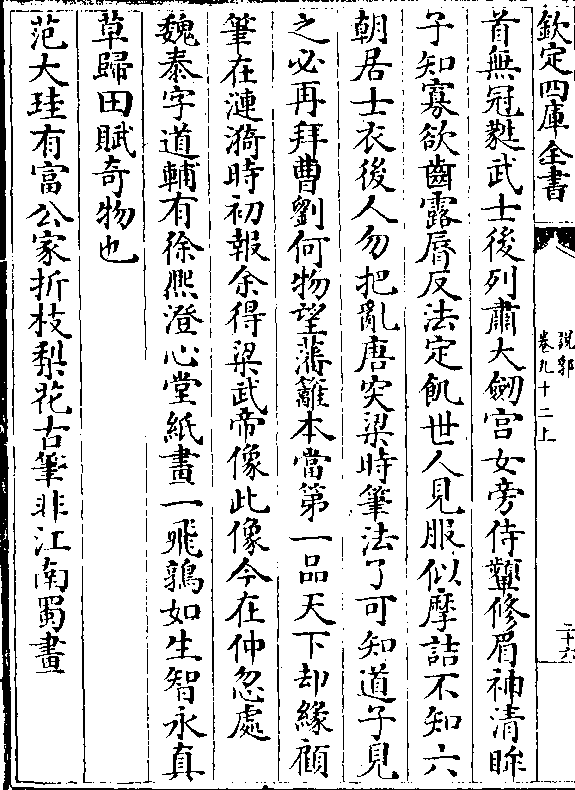 欽定四庫全書
説郛
卷九十二上
二十六
首無冠蕤武士後列肅大劒宫女旁侍顰修眉神清眸
子知寡欲齒露脣反法定飢世人見服似摩詰不知六
朝居士衣後人勿把亂唐突梁時筆法了可知道子見
之必再拜曹劉何物望藩籬本當第一品天下却緣顧
筆在漣漪時初報余得梁武帝像此像今在仲忽處
魏泰字道輔有徐熈澄心堂紙畫一飛鶉如生智永真
草歸田賦奇物也
范大珪有富公家折枝梨花古筆非江南蜀畫